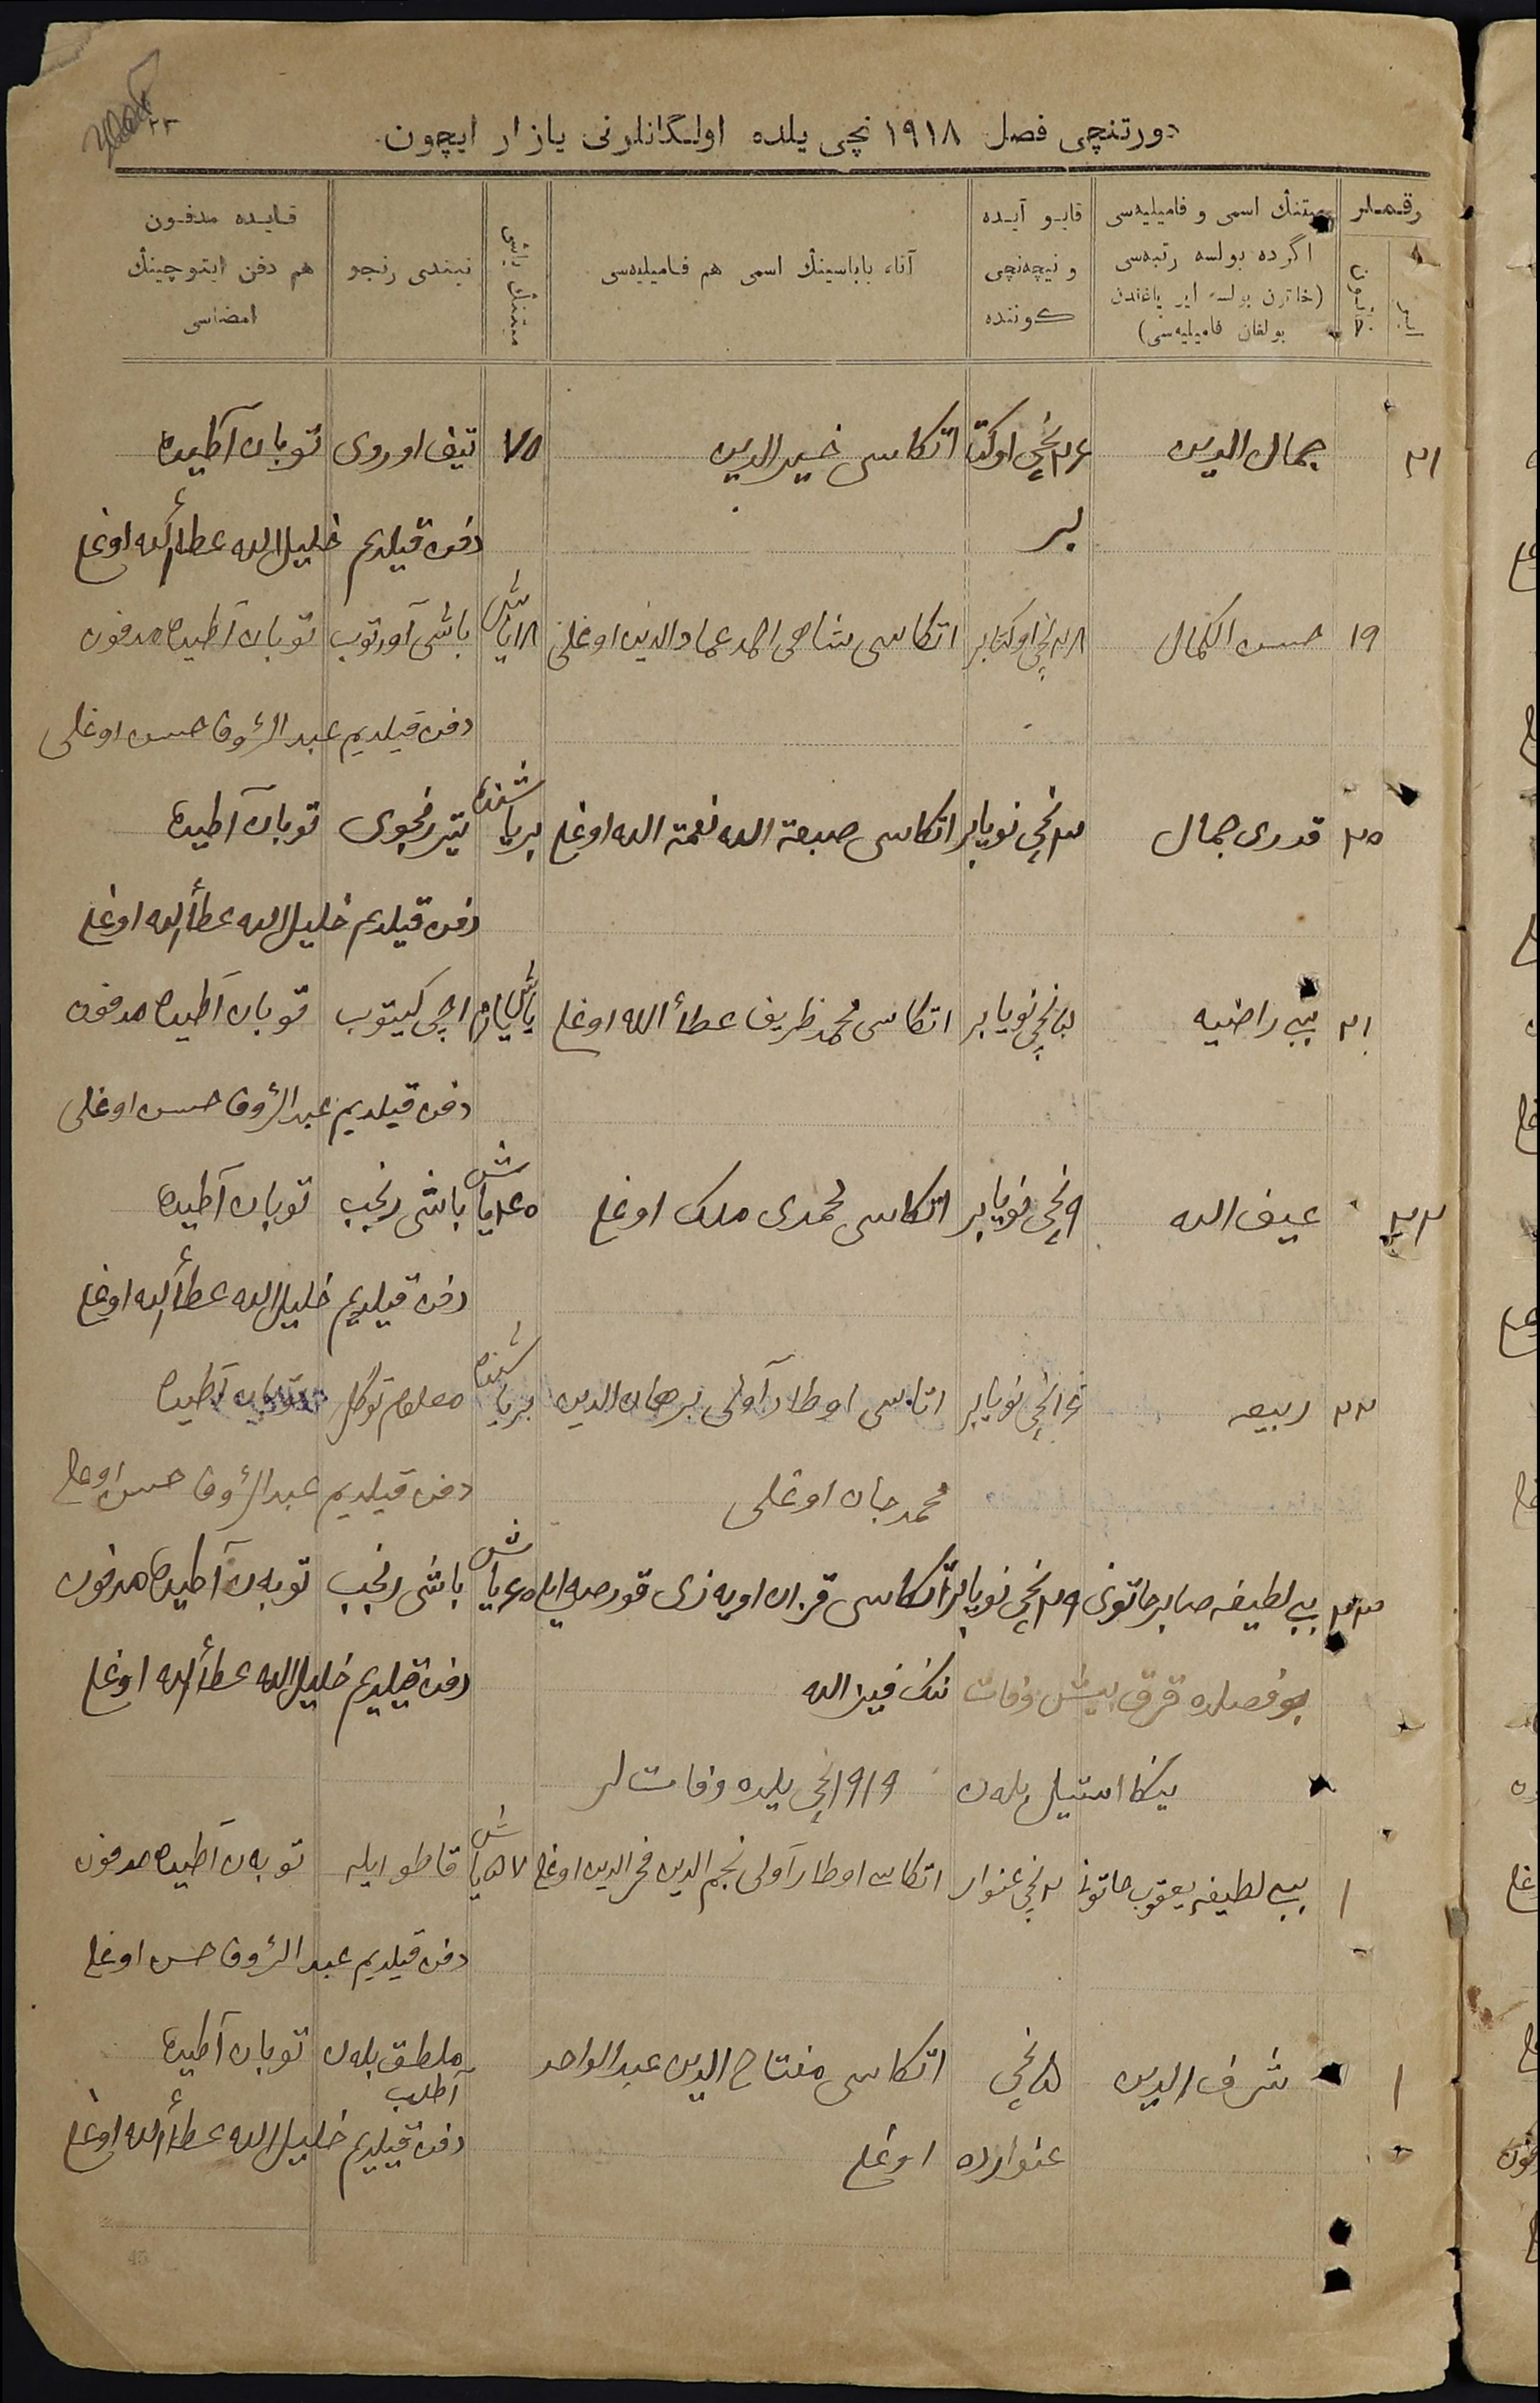 دورتنچی فصل ۱۹۱۸ نچی یلده اولگانلرنی یازار ایچون.
رقملر
میتنڭ اسمی و فامیلیه‌سی اگرده بولسه رتبه‌سی (خاتون بولسه ایر یاغندن بولغان فامیلیه‌سی)
قایو آیده و نیچه‌نچی کوننده
آناء باباسینڭ اسمی هم فامیلیه‌سی
میتنڭ یاشی
نیندی رنجو
قایده مدفون هم دفن ایتوچینڭ امضاسی
۲۱ جمال الدین ۲۶نچی اوکتا اتکاسی خیرالدین ۷۵ تیف اوروی توبان آطیده
بر دفن قیلدم خلیل الله عطأ الله اوغلی
۱۹ حسن الکمال ۲۸نچی اوکتابر اتکاسی شاهی احمد عمادالدین اوغلی ۱۸ یاش باشی آورتوب توبان آطیده مدفون
دفن قیلدیم عبدالرؤف حسن اوغلی
۲۰ قدری جمال ۳نچی نویابر اتکاسی صبغة الله نعمة الله اوغلی بر یاشنده توبان آطیده
دفن قیلدم خلیل الله عطأ الله اوغلی
۲۱ بیبی راضیه نچی نویابر اتکاسی محمد ظریف عطأ الله اوغلی یارم یاش اچی کیتوب توبان آطیده مدفون
دفن قیلدیم عبدالرؤف حسن اوغلی
۲۲ عیف الله ۹نچی نویابر اتکاسی محمدی ملک اوغلی ۴۵ یاش باشی رنجب توبان آطیده
دفن قیلدیم خلیل الله عطأ الله اوغلی
۲۲ ربیعه ۱۶نچی نویابر اتاسی اوطار آولی برهان الدین بر یاشنده معلوم توگل توبان آطیده
محمد جان اوغلی دفن قیلدیم عبدالرؤف حسن اوغلی
۲۳ بیبی لطیفه صابر خاتونی ۲۹نچی نویابر اتکاسی قزان اویه‌زی قورصه ایلی ۶۵ یاش باشی رنجب توبەن آطیده مدفون
بو فصلده قرق بیش وفات ننک فیزالله دفن قیلدیم خلیل الله عطأ الله اوغلی
ینکا استیل بله‌ن ۱۹۱۹نچی یلده وفات لر
۱ بیبی لطیفه یعقوب خاتونی ۲نچی غنوار اتکاسی اوطار آولی نجم الدین فخرالدین اوغلی ۵۷ یاش قاطو ایله توبەن آطیده مدفون
دفن قیلدیم عبدالرؤف حسن اوغلی
۱ شرف الدین ۵نچی اتکاسی مفتاح الدین عبدالواحد ملطق بله‌ن توبان آطیده
آطلب
غنوارده اوغلی دفن قیلدیم خلیل الله عطأ الله اوغلی